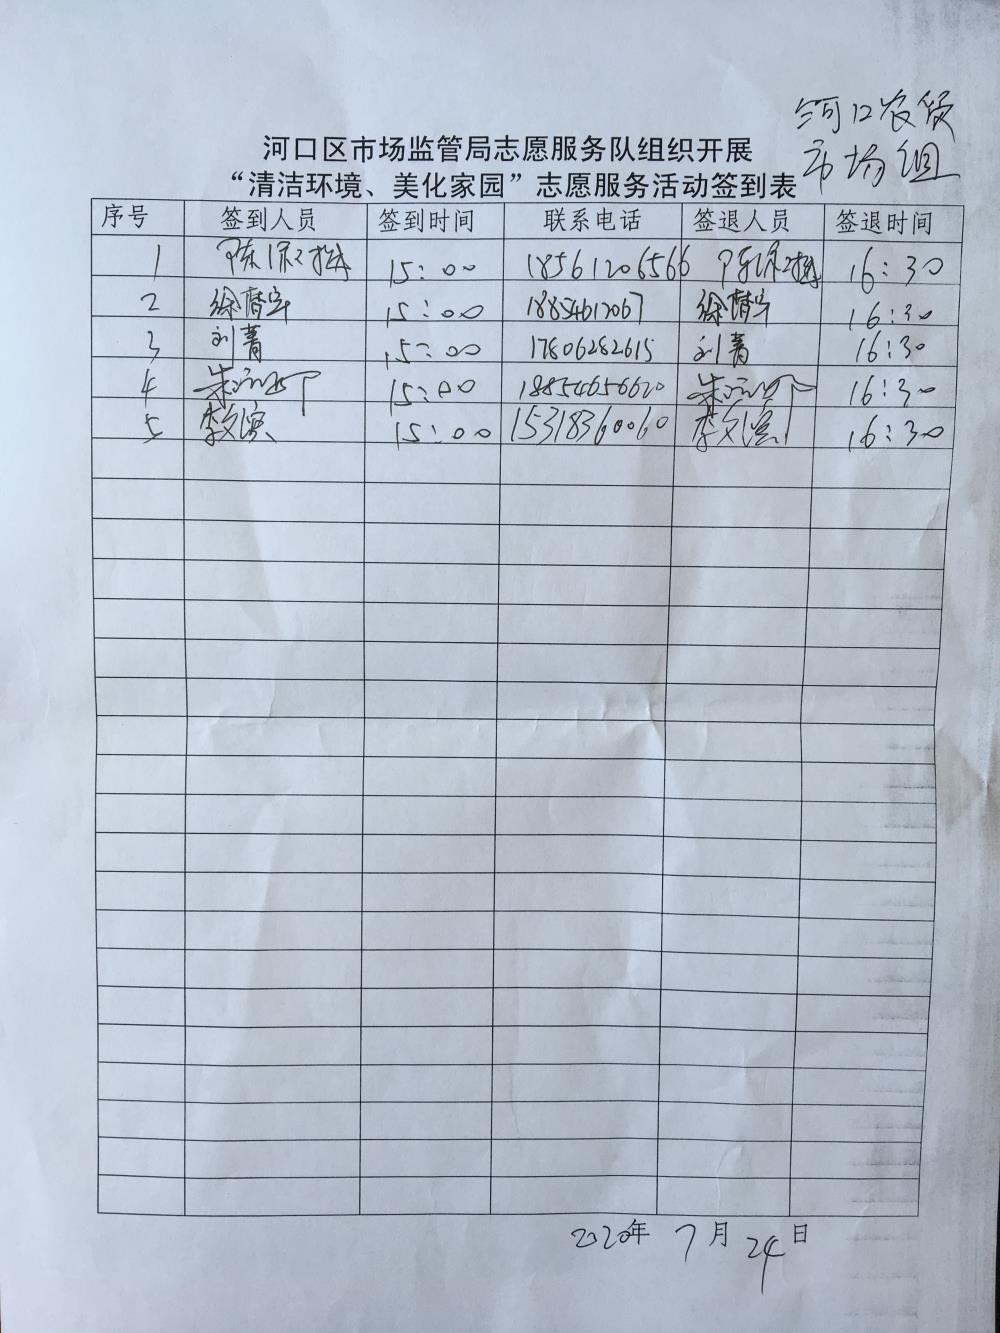 河口农贸
市场组
河口区市场监管局志愿服务队组织开展
“清洁环境、美化家园”志愿服务活动签到表
序号 签到人员 签到时间 联系电话 签退人员 签退时间
1 15:00 18561206566 16:30
2 15:00 18854612067 16:30
3 刘菁 15:00 17806282615 刘菁 16:30
4 15:00 18854656620 16:30
5 李文滨 15:00 15318360060 李文滨 16:30
2020年 7月 24日